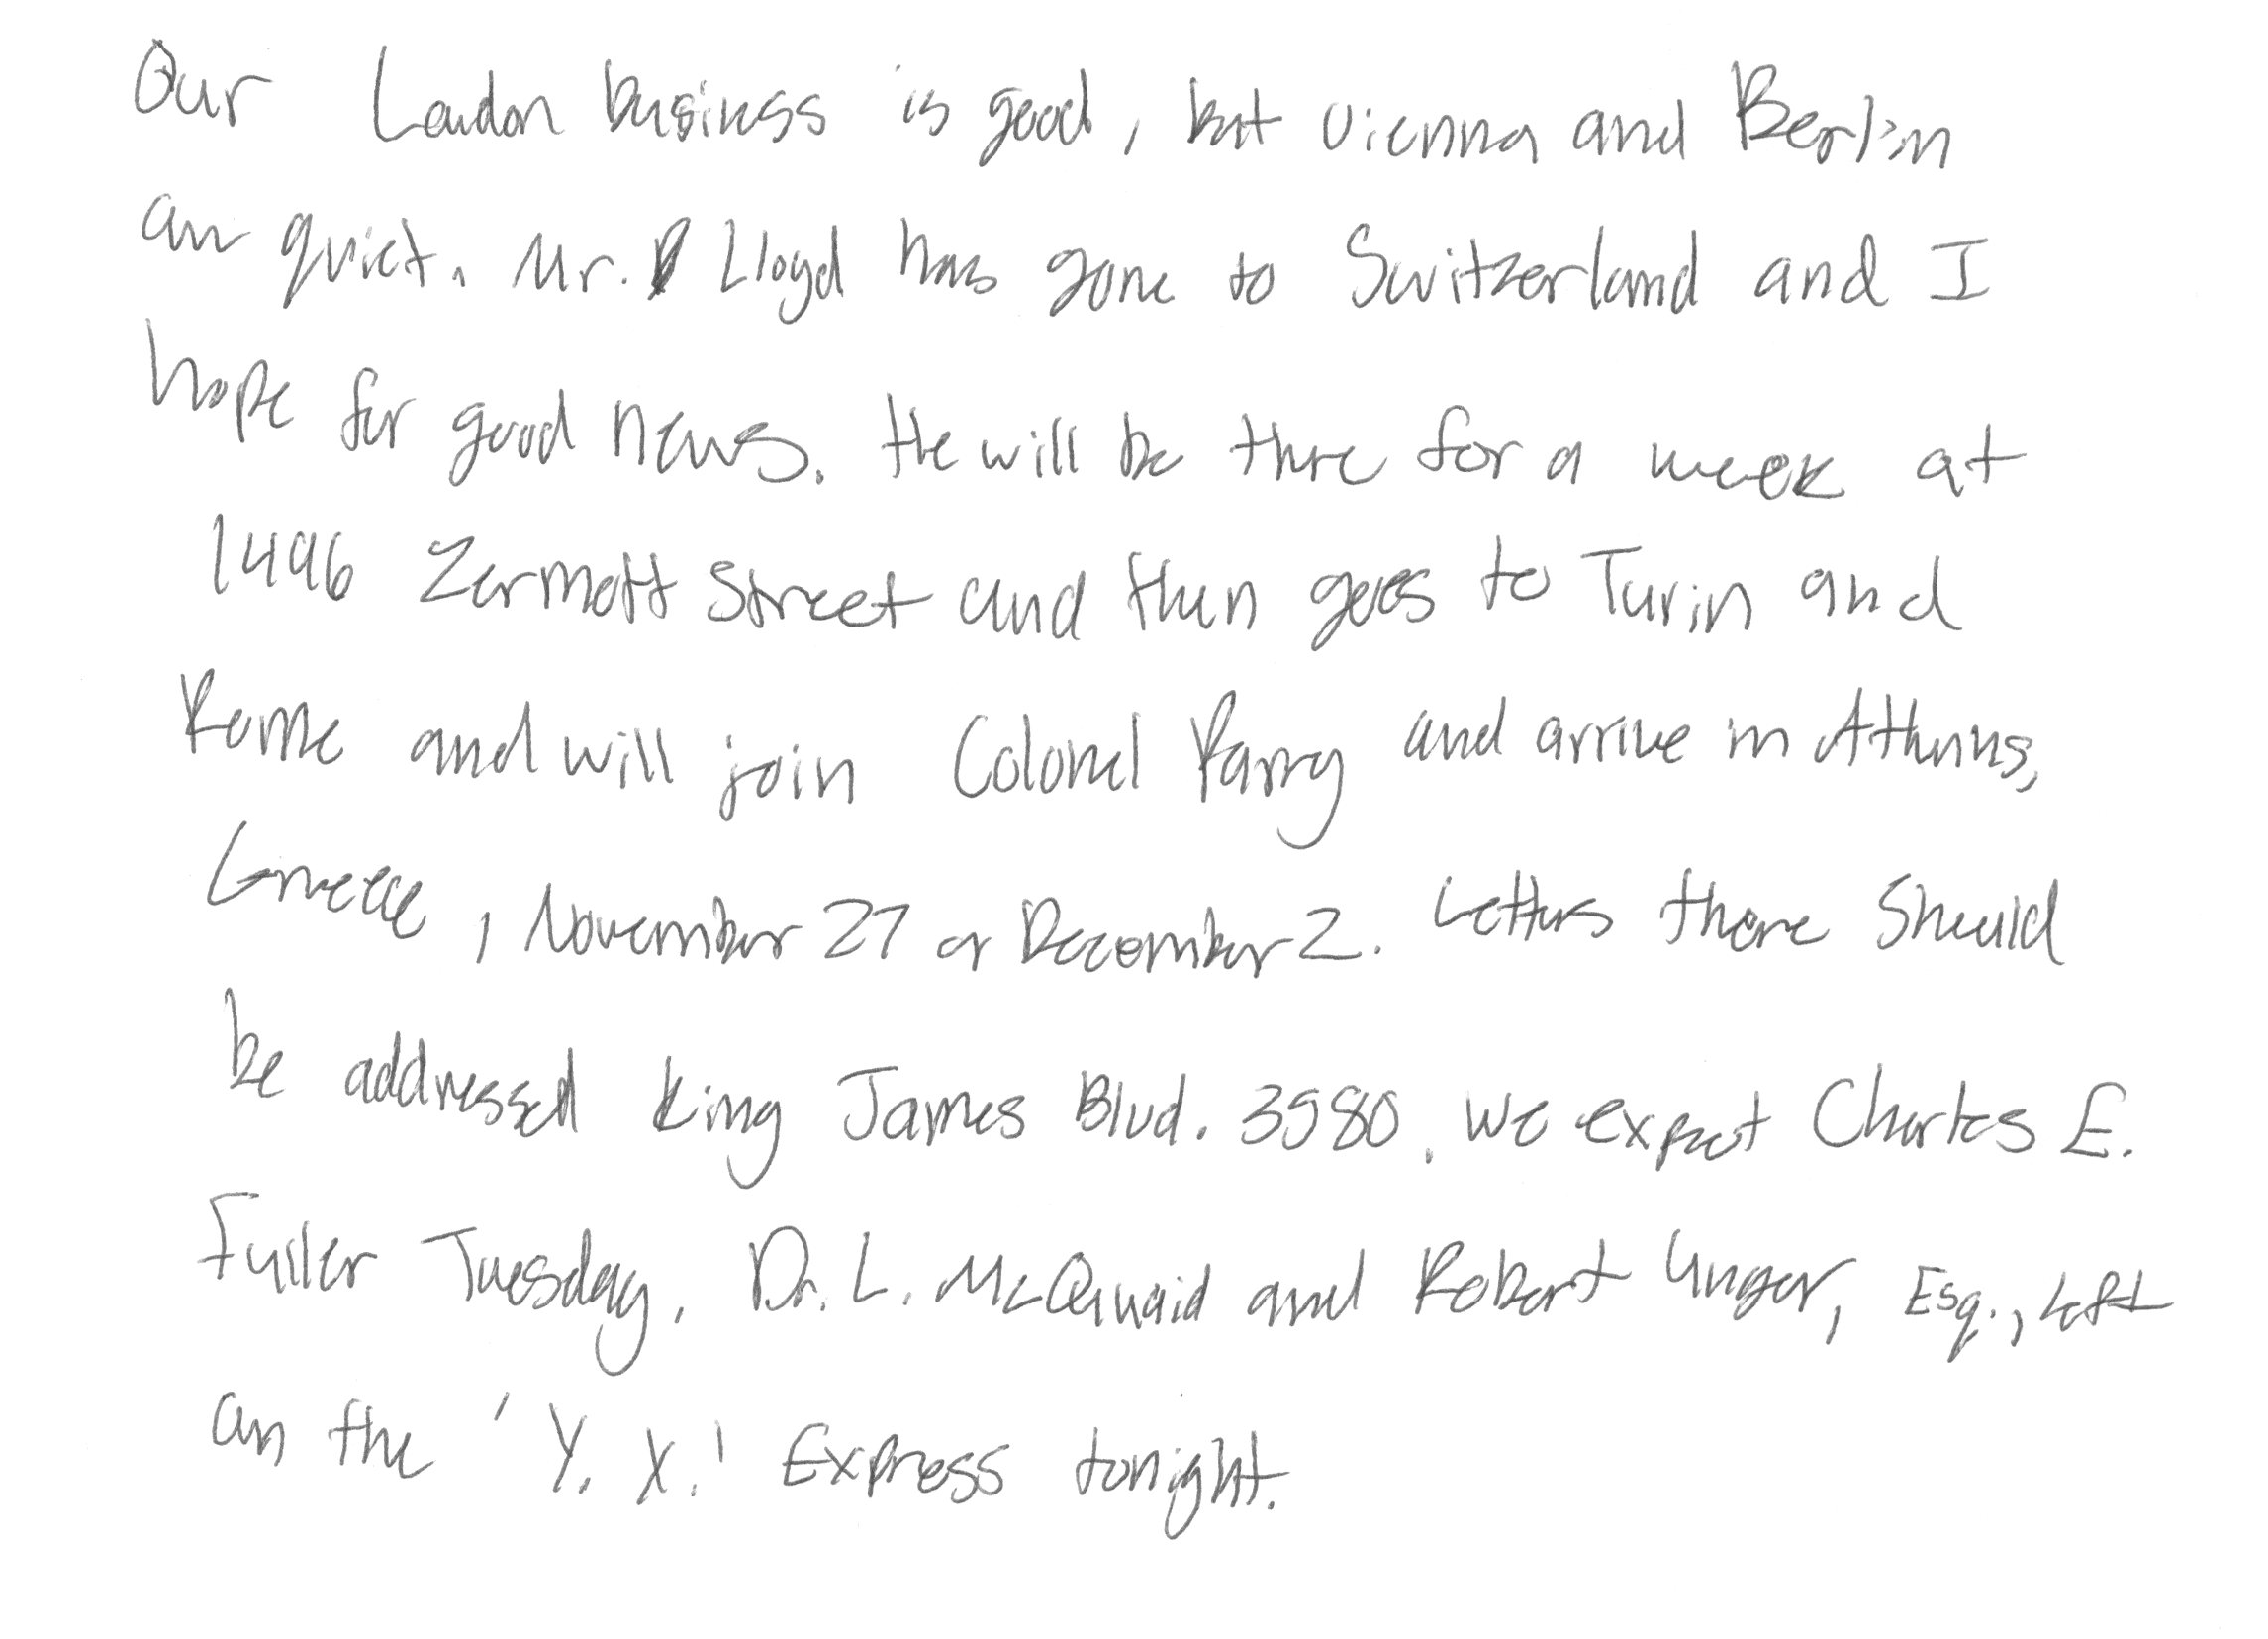 Our London business is good, but Vienna and Berlin
are quiet. Mr. Lloyd has gone to Switzerland and I
hope for good news. He will be there for a week at
1496 Zermott Street and then goes to Turin and
Rome and will join Colonel Parry and arrive in Athens,
Greece, November 27 or December 2. Letters there should
be addressed King James Blvd. 3580. We expect Charles E.
Fuller Tuesday. Dr. L. McQuaid and Robert Unger, Esq., left
on the 'Y. X.' Express tonight.